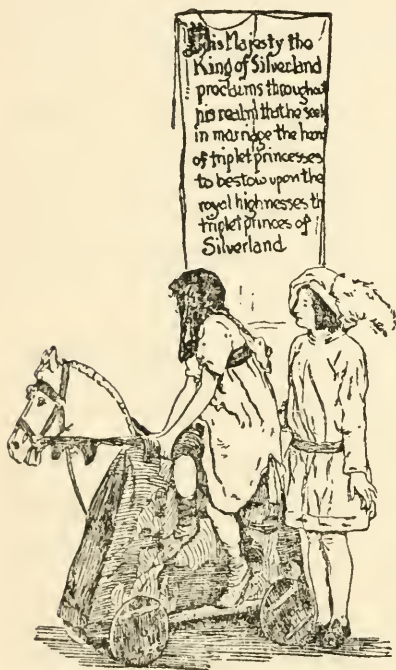 His Majesty the
King of Silverland
proclaims throughout
his realm that he seek
in marriage the hand
of triplet princesses
to bestow upon the
royal highnesses th
triplet princes of
Silverland